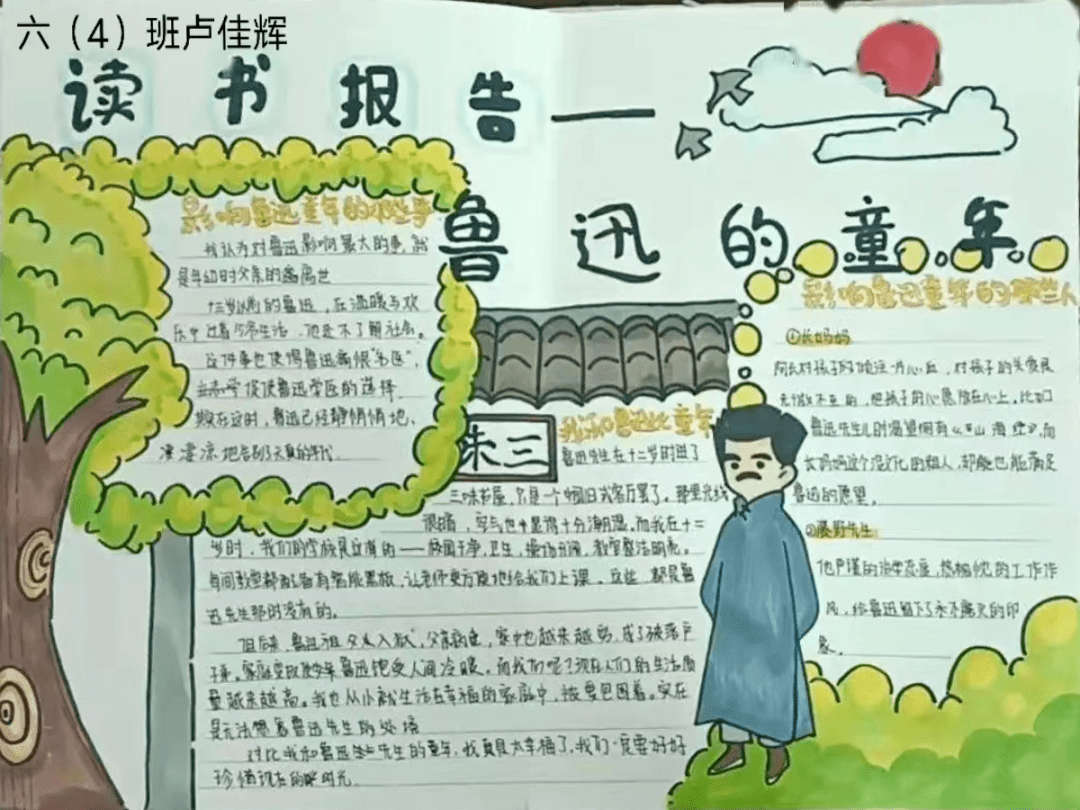 六（4）班卢佳辉
读书报告——
鲁迅的童年
影响鲁迅童年的那些事
我认为对鲁迅影响最大的事,就
是年幼时父亲的离世
十三岁以前的鲁迅，在温暖与欢
乐中过着生活，他还不了解社会。
这件事也使得鲁迅痛恨“名医”,
促使鲁迅学医的选择
在这时,鲁迅已经静悄悄地、
凄凉地告别了天真的年代
三味书屋
我和鲁迅比童年
鲁迅先生在十二岁时进了
三味书屋,只是一个中国旧式客厅罢了。那里光线
很暗，空气也十分潮湿,而我在十二
岁时，我们的学校是这样的——校园干净,卫生，操场开阔，教室整洁明亮。
每间教室都配备有智能黑板,让老师更方便地给我们上课。这些都是鲁
迅先生那时没有的。
但后来,鲁迅祖父入狱,父亲病重，家中也越来越穷,成了破落户
子弟。家庭变故使鲁迅饱受人间冷暖。而我们呢？现在人们的生活质
量越来越高。我也从小就生活在幸福的家庭中，被爱包围着。实在
是无法想象鲁迅先生的处境
对比我和鲁迅先生的童年,我真是太幸福了,我们一定要好好
珍惜现在的时光。
影响鲁迅童年的那些人
①长妈妈
阿长对孩子的一片心丘，对孩子的关爱是
无微不至的，把孩子的心愿放在心上。比如
鲁迅先生儿时渴望拥有《山海经》,而
长妈妈这个没文化的粗人,却能也能满足
鲁迅的愿望。
②藤野先生
他严谨的治学态度,热情的工作作
风，给鲁迅留下了永不磨灭的印
象。